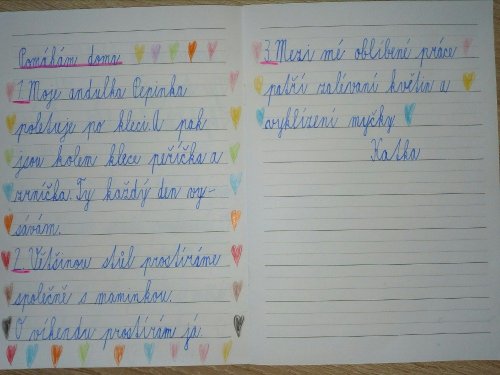 Pomáhám doma
1. Moje andulka Pepinka
poletuje po kleci. A pak
jsou kolem klece peříčka a
zrníčka. Ty každý den vy-
sávám.
2. Většinou stůl prostíráme
společně s maminkou.
O víkendu prostírám já.
3. Mezi mé oblíbené práce
patří zalévaní květin a
vyklízení myčky.
Katka